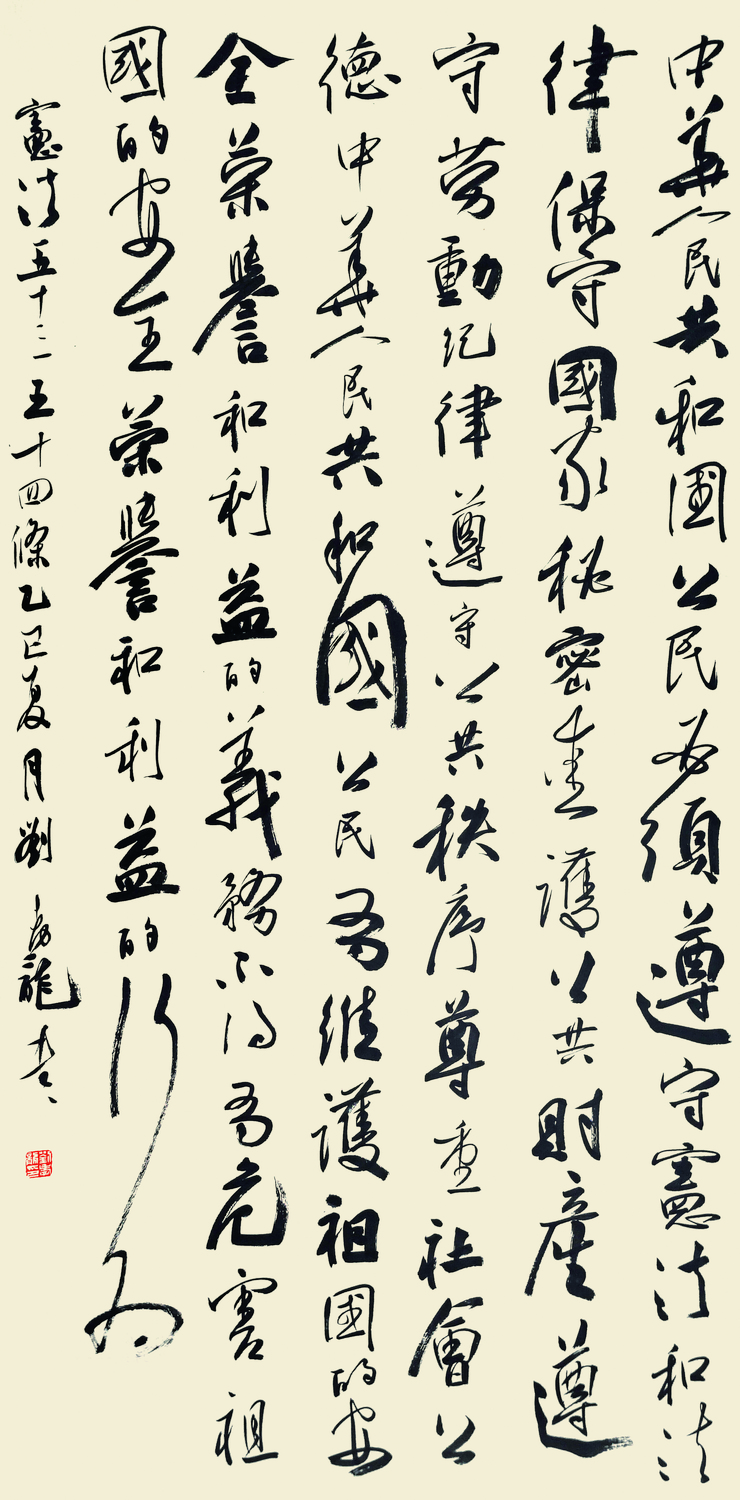 中華人民共和國公民必須遵守憲法和法
律保守國家秘密愛護公共財產遵
守勞動紀律遵守公共秩序尊重社會公
德中華人民共和國公民有維護祖國的安
全榮譽和利益的義務不得有危害祖
國的安全榮譽和利益的行為
憲法五十三五十四條乙巳夏月劉龍書